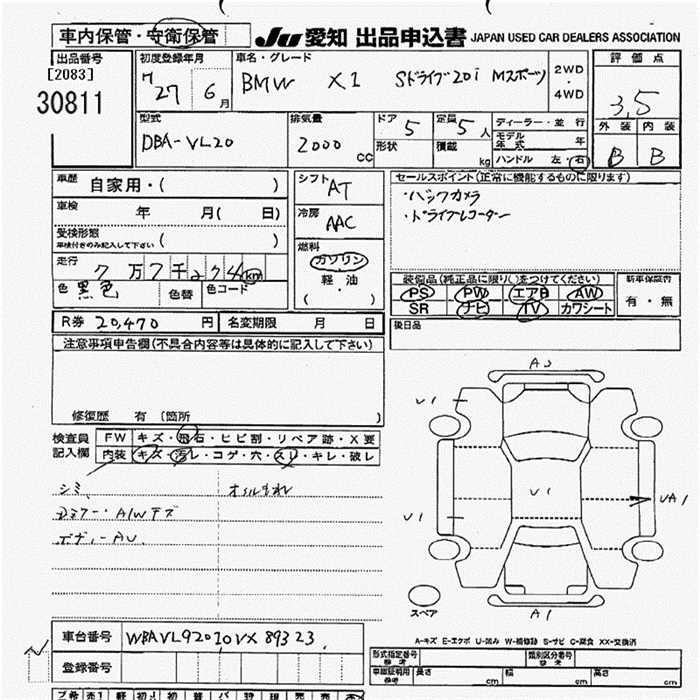 車内保管・守衛保管
JU 愛知 出品申込書 JAPAN USED CAR DEALERS ASSOCIATION
出品番号
[2083]
30811
初度登録年月
27 6月
車名・グレード
BMW X1 Sドライブ20i Mスポーツ
2WD
・
4WD
評価点
3,5
外装 内装
B B
型式
DBA-VL20
排気量
2000 cc
ドア
5
定員
5人
形状
積載
kg
ディーラー・並行
モデル年式 年
ハンドル 左・右
車歴 自家用・( )
車検 年 月( 日)
受検形態
車検付きのみ記入して下さい ( )
走行 7万7千274km
色 黒色 色替 色コード
シフト AT
冷房 AAC
燃料
ガソリン
軽・油
( )
セールスポイント(正常に機能するものに限ります)
・バックカメラ
・ドライブレコーダー
装備品(純正品に限り○をつけてください)
PS PW エアB AW
SR ナビ TV カワシート
新車保証書
有・無
後日品
R券 20,470 円 名変期限 月 日
注意事項申告欄(不具合内容等は具体的に記入して下さい)
修復歴 有 (箇所 )
検査員記入欄
FW キズ・飛石・ヒビ割・リペア跡・X要
内装 キズ・汚レ・コゲ・穴・スレ・キレ・破レ
シミ
AWキズ
ボデーAU
A3
U1
U1
U1
UA1
A1
スペア
A-キズ E-エクボ U-凹み W-補修跡 S-サビ C-腐食 XX-交換済
車台番号 WBAVL92010VX89323
登録番号
型式指定番号
参考
類別区分番号
参考
車庫証明用
参考
長さ cm 幅 cm 高さ cm